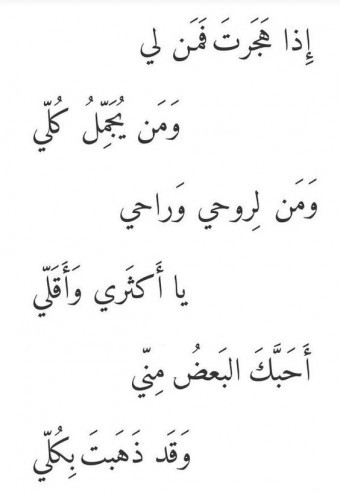 إِذا هَجَرتَ فَمَن لي
وَمَن يُجَمِّلُ كُلّي
وَمَن لِروحي وَراحي
يا أَكثَري وَأَقَلّي
أَحَبَّكَ البَعضُ مِنّي
وَقَد ذَهَبتَ بِكُلّي